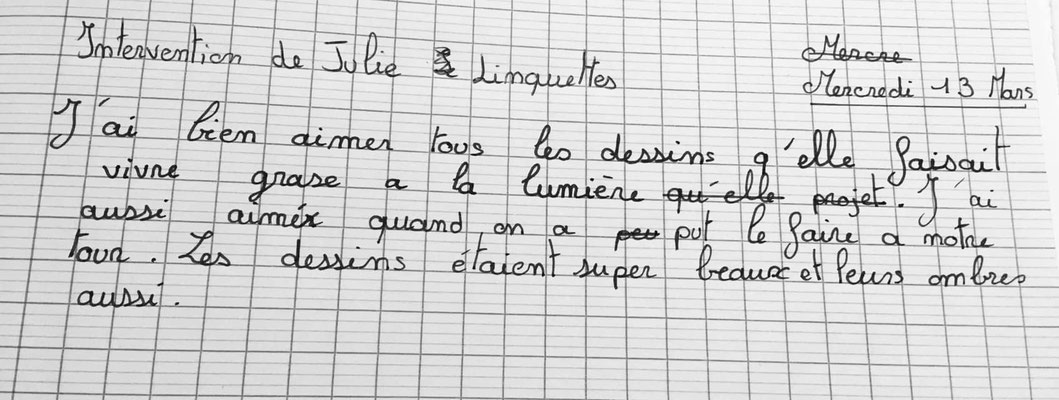 Intervention de Julie Linquettes
Mercre
Mercredi 13 Mars
J'ai bien aimer tous les dessins q'elle faisait
vivre grase a la lumière qu'elle projet. J'ai
aussi aimér quand on a peu put le faire a notre
tour. Les dessins étaient super beaux et leurs ombres
aussi.